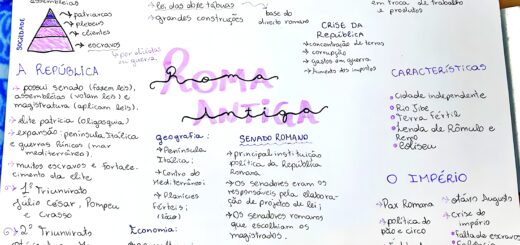 assembleias
SOCIEDADE
→ patriarcas
→ plebeus
→ clientes
→ escravos
→ por dívidas
ou guerra.
→ leis das doze tábuas
→ grandes construções
base do
direito romano
CRISE DA
REPÚBLICA
→ concentração de terras
→ corrupção
→ gastos em guerra
→ Aumento dos impostos
em troca de trabalho
e produtos
A REPÚBLICA
→ possui senado (fazem leis),
assembléias (votam leis) e
magistratura (aplicam leis).
→ elite patrícia (oligarquia)
→ expansão: península Itálica
e guerras Púnicas (mar
mediterrâneo).
→ muitos escravos e fortale-
cimento da elite
→ 1º Triunvirato
Júlio César, Pompeu
e Crasso
→ 2º Triunvirato
Roma
ANTIGA
Antiga
geografia:
→ Península
Itálica:
→ Centro do
Mediterrâneo:
→ Planícies
Férteis:
Economia:
SENADO ROMANO
→ principal instituição
política da República
Romana
→ Os senadores eram os
responsáveis pela elabora-
ção de projetos de lei;
→ Os senadores romanos
que escolhiam os
magistrados.
CARACTERÍSTICAS
• Cidade independente
• Rio Tibe
• Terra Fértil
• Lenda de Rômulo e
Remo
• Coliseu
O IMPÉRIO
→ Pax Romana
→ política do
pão e circo
→ otávio Augusto
→ Crise do
império
• Falta de escravos